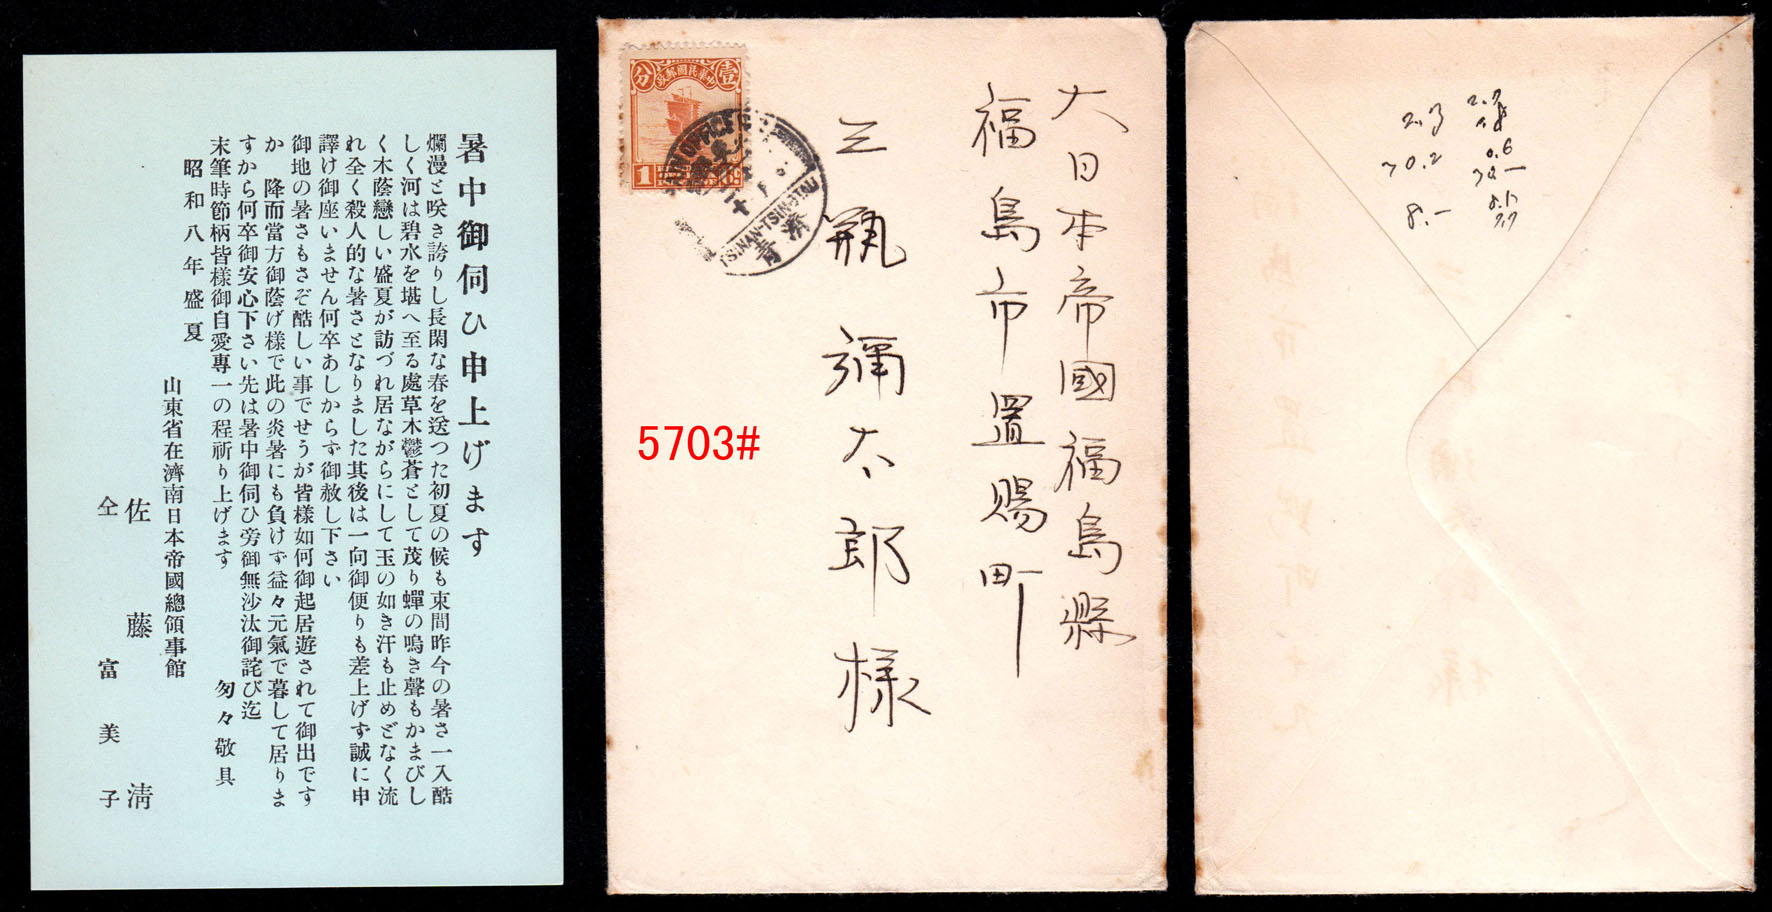 暑中御伺ひ申上げます
爛漫と咲き誇りし長閑な春を送つた初夏の候も束間昨今の暑さ一入酷
しく河は碧水を堪へ至る處草木鬱蒼として茂り蟬の鳴き聲もかまびし
く木蔭戀しい盛夏が訪づれ居ながらにして玉の如き汗も止めどなく流
れ全く殺人的な暑さとなりました其後は一向御便りも差上げず誠に申
譯け御座いません何卒あしからず御赦し下さい
御地の暑さもさぞ酷しい事でせうが皆樣如何御起居遊されて御出です
か 降而當方御蔭げ樣で此の炎暑にも負けず益々元氣で暮して居りま
すから何卒御安心下さい先は暑中御伺ひ旁御無沙汰御詫び迄
末筆時節柄皆樣御自愛專一の程祈り上げます 匆々敬具
昭和八年盛夏
山東省在濟南日本帝國總領事館
佐藤淸
仝 富美子
中華民國郵政
壹分
1
TSINAN-TSINGTAU
濟青
大日本帝國福島縣
福島市置賜町
三瓶彌太郎様
5703#
2.3
70.2
8.-
0.6